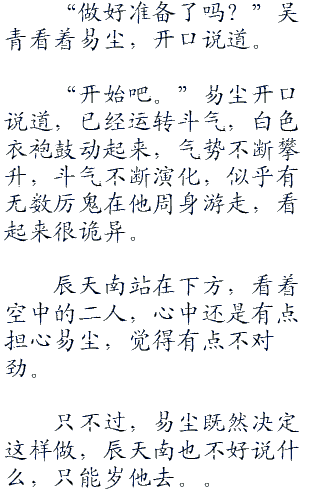 “做好准备了吗？”吴
青看着易尘，开口说道。
“开始吧。”易尘开口
说道，已经运转斗气，白色
衣袍鼓动起来，气势不断攀
升，斗气不断演化，似乎有
无数厉鬼在他周身游走，看
起来很诡异。
辰天南站在下方，看着
空中的二人，心中还是有点
担心易尘，觉得有点不对
劲。
只不过，易尘既然决定
这样做，辰天南也不好说什
么，只能岁他去。。